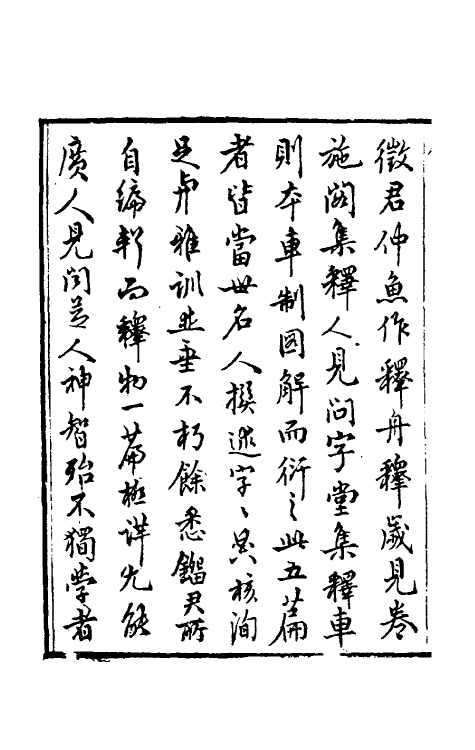 徵君仲魚作釋舟釋歲見卷
施閣集釋人見問字堂集釋車
則本車制圖解而衍之此五篇
者皆當世名人撰述字〻㒷核洵
足與雅訓並垂不朽餘悉鑑君所
自編輯而釋物一篇極詳尤能
廣人見聞益人神智殆不獨學者